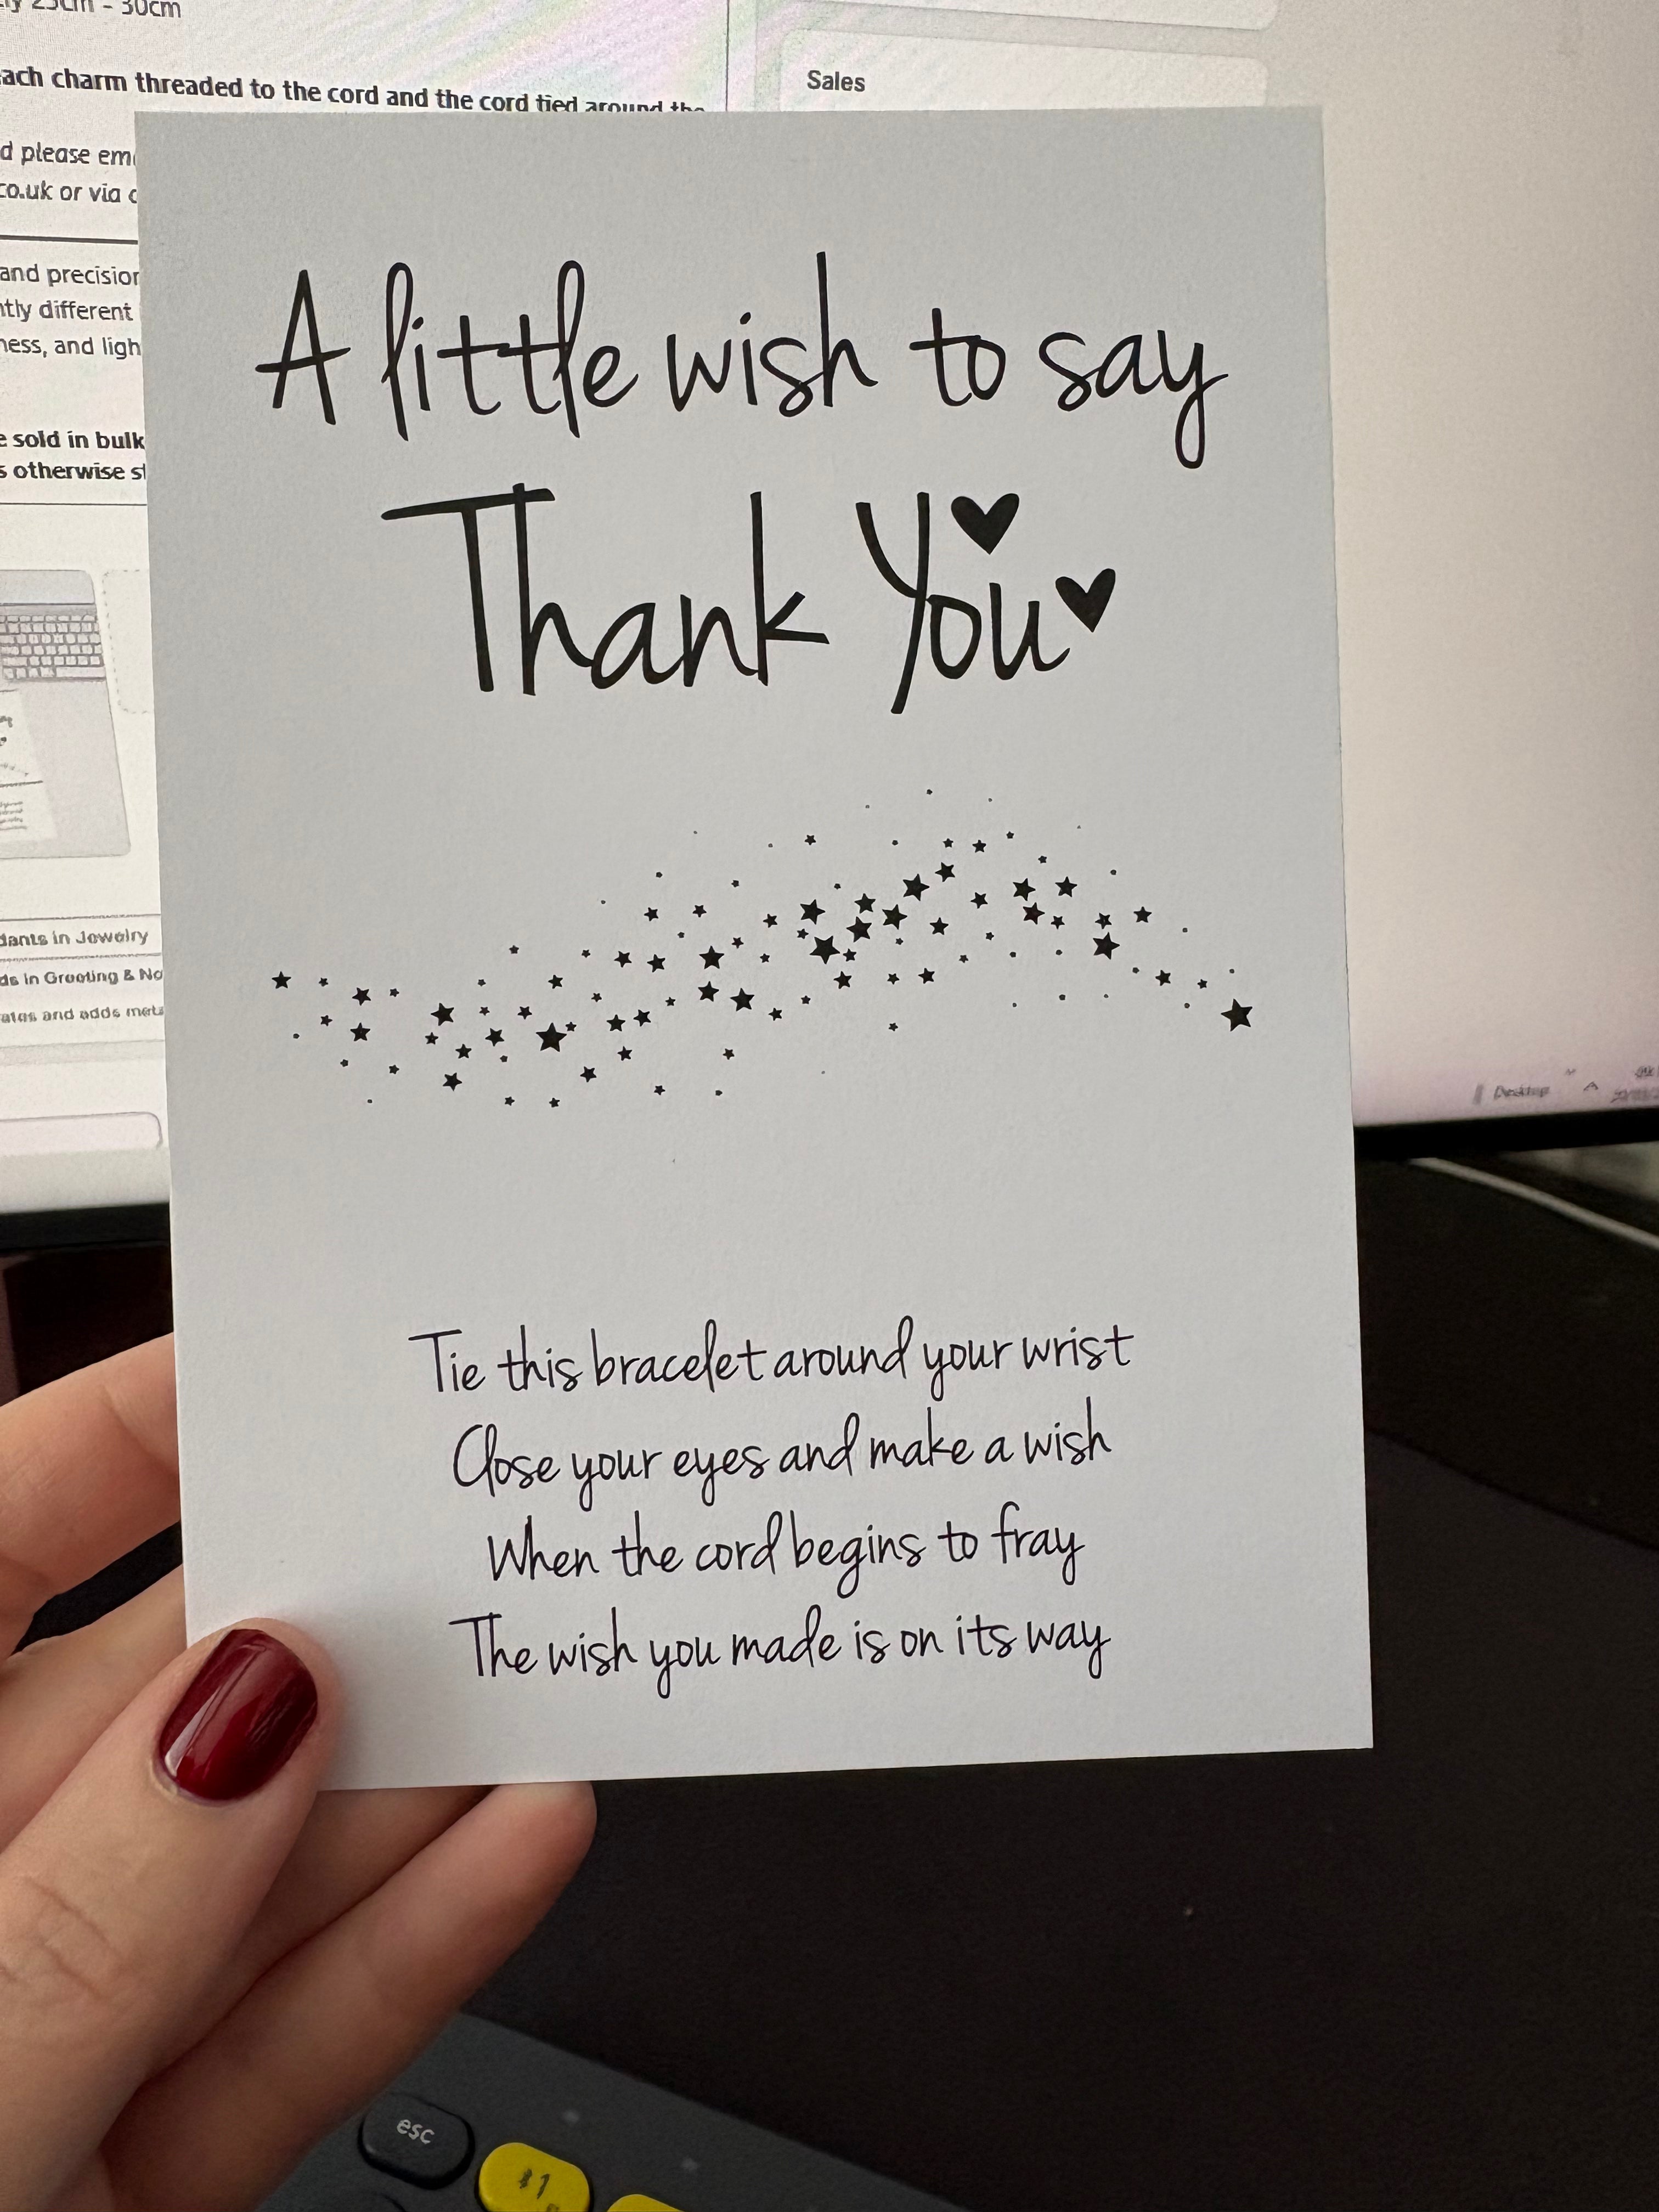 25cm - 30cm
ach charm threaded to the cord and the cord tied around the
Sales
d please em
co.uk or via
and precision
tly different
ness, and ligh
e sold in bulk
s otherwise
A little wish to say
Thank You
dants in Jewelry
ds in Greeting & No
ates and adds
Desktop
Tie this bracelet around your wrist
Close your eyes and make a wish
When the cord begins to fray
The wish you made is on its way
esc